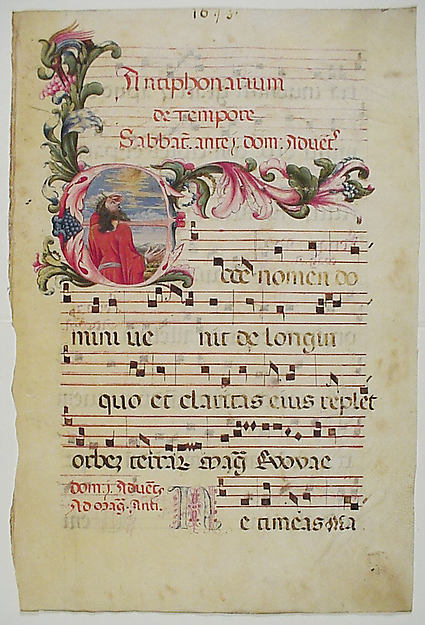 Antiphonarium
de Tempore
Sabbat. ante j dom. Aduēt.
Ecce nomen do
mini ue nit de longin
quo et claritas eius replet
orbez terrar Mag Evovae
dom. j. Aduēt.
Ad Mag. Anti.
Ne timeas Ma